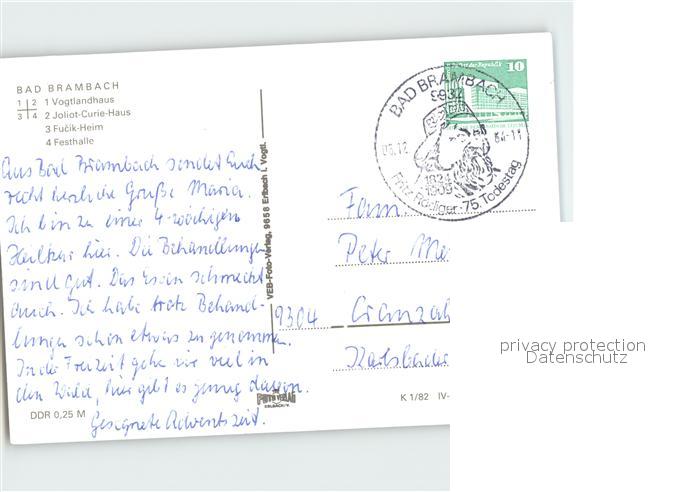 BAD BRAMBACH
1 2 1 Vogtlandhaus
3 4 2 Joliot-Curie-Haus
3 Fučik-Heim
4 Festhalle
Aus Bad Brambach sendet Euch
recht herzliche Grüße Maria.
Ich bin zu einer 4-wöchigen
Heilkur hier. Die Behandlungen
sind gut. Das Essen schmeckt
auch. Ich habe trotz Behand-
lungen schon etwas zugenommen.
In der Freizeit gehe wir viel in
den Wald, hier gibt es genug davon.
Gesegnete Adventszeit.
DDR 0,25 M
VEB-Foto-Verlag, 9658 Erlbach i. Vogtl.
FOTO VERLAG
ERLBACH/V.
K 1/82 IV-
10
BAD BRAMBACH
9932
1909
75. Todestag
Fam.
Peter
9304 Cranzahl
Karlsbader
privacy protection
Datenschutz